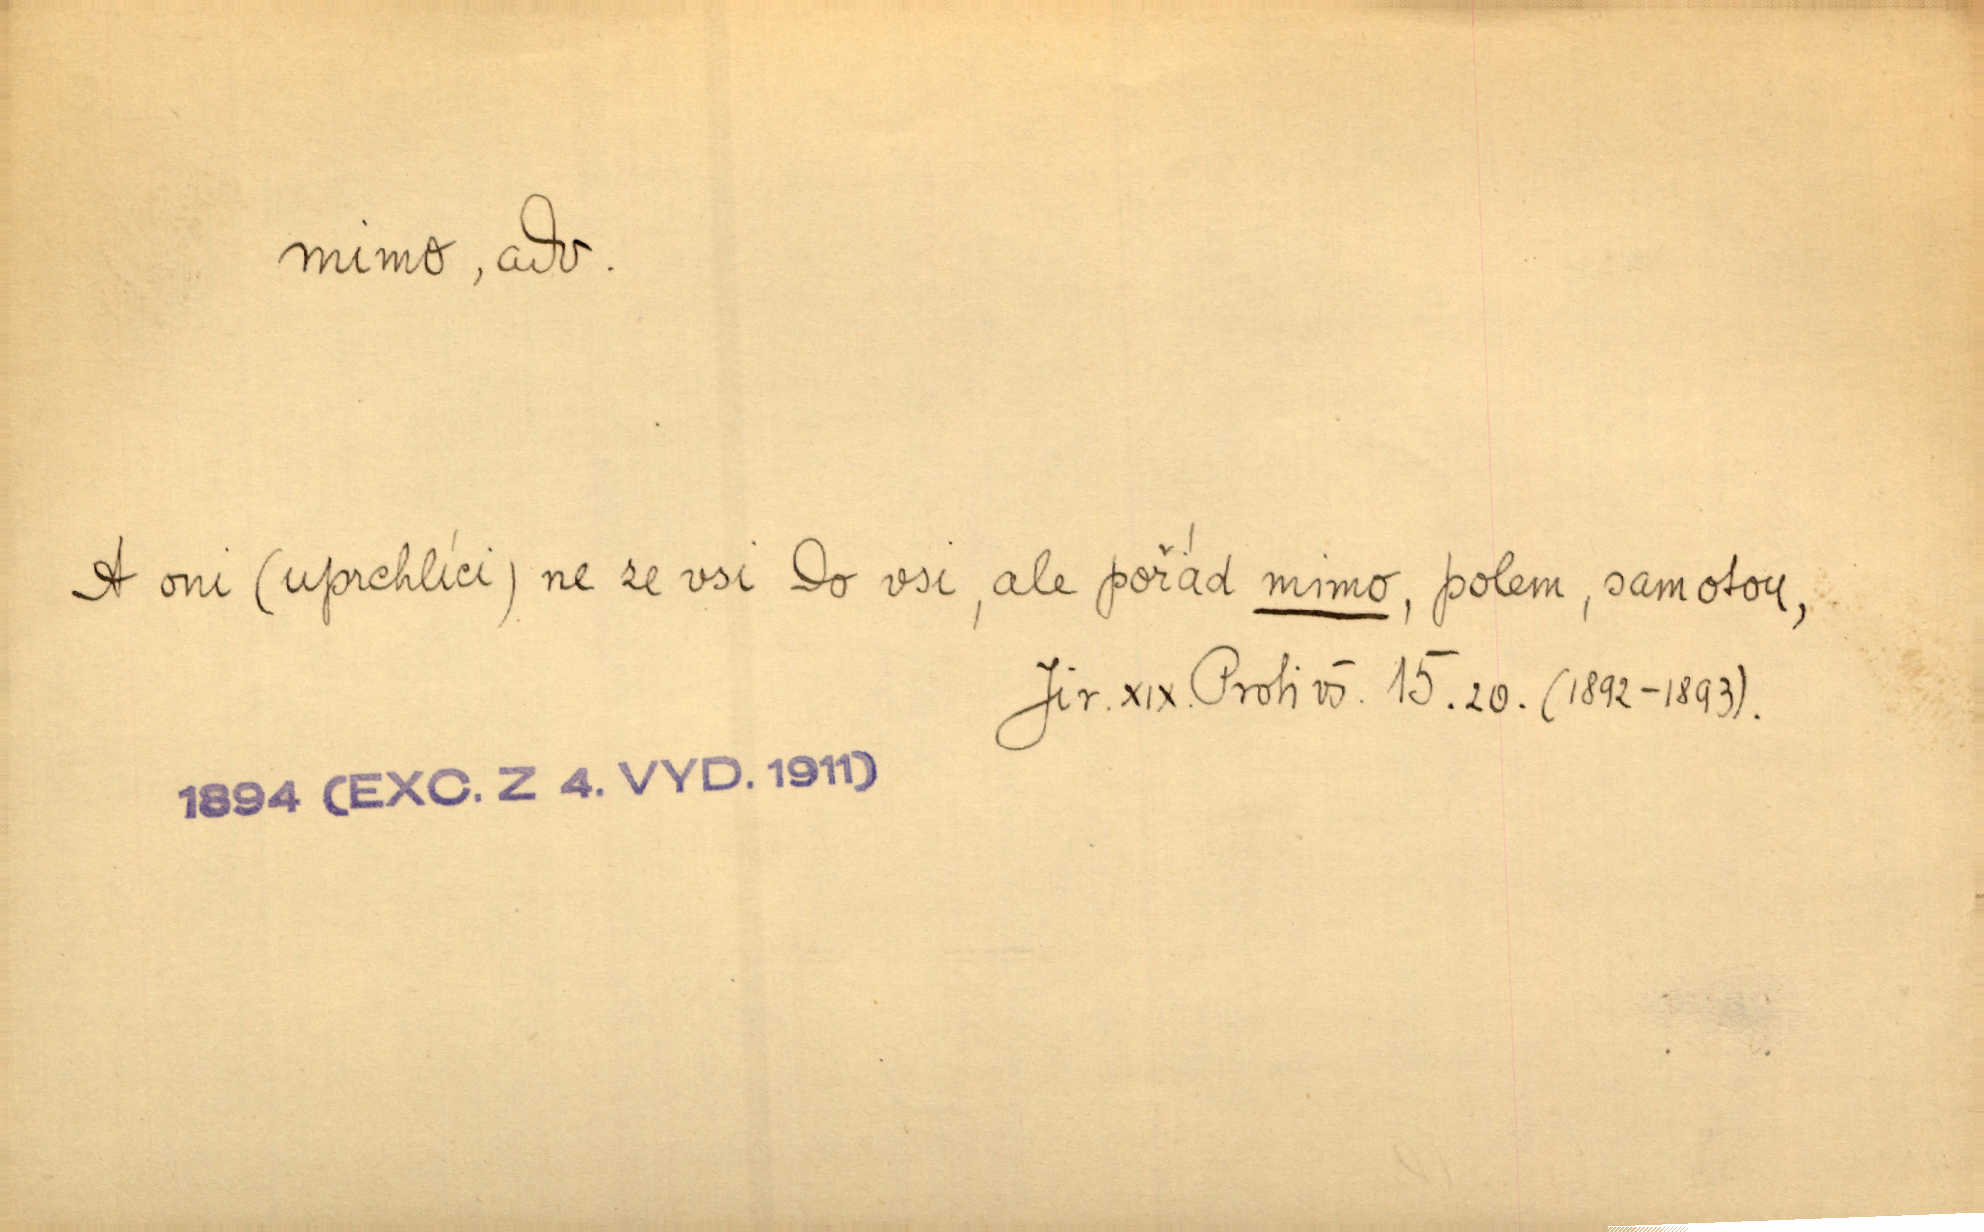 mimo, adv.
A oni (uprchlíci) ne ze vsi do vsi, ale pořád mimo, polem, samotou,
Jir. XIX. Proti vš. 15. 20. (1892-1893).
1894 (EXC. Z 4. VYD. 1911)